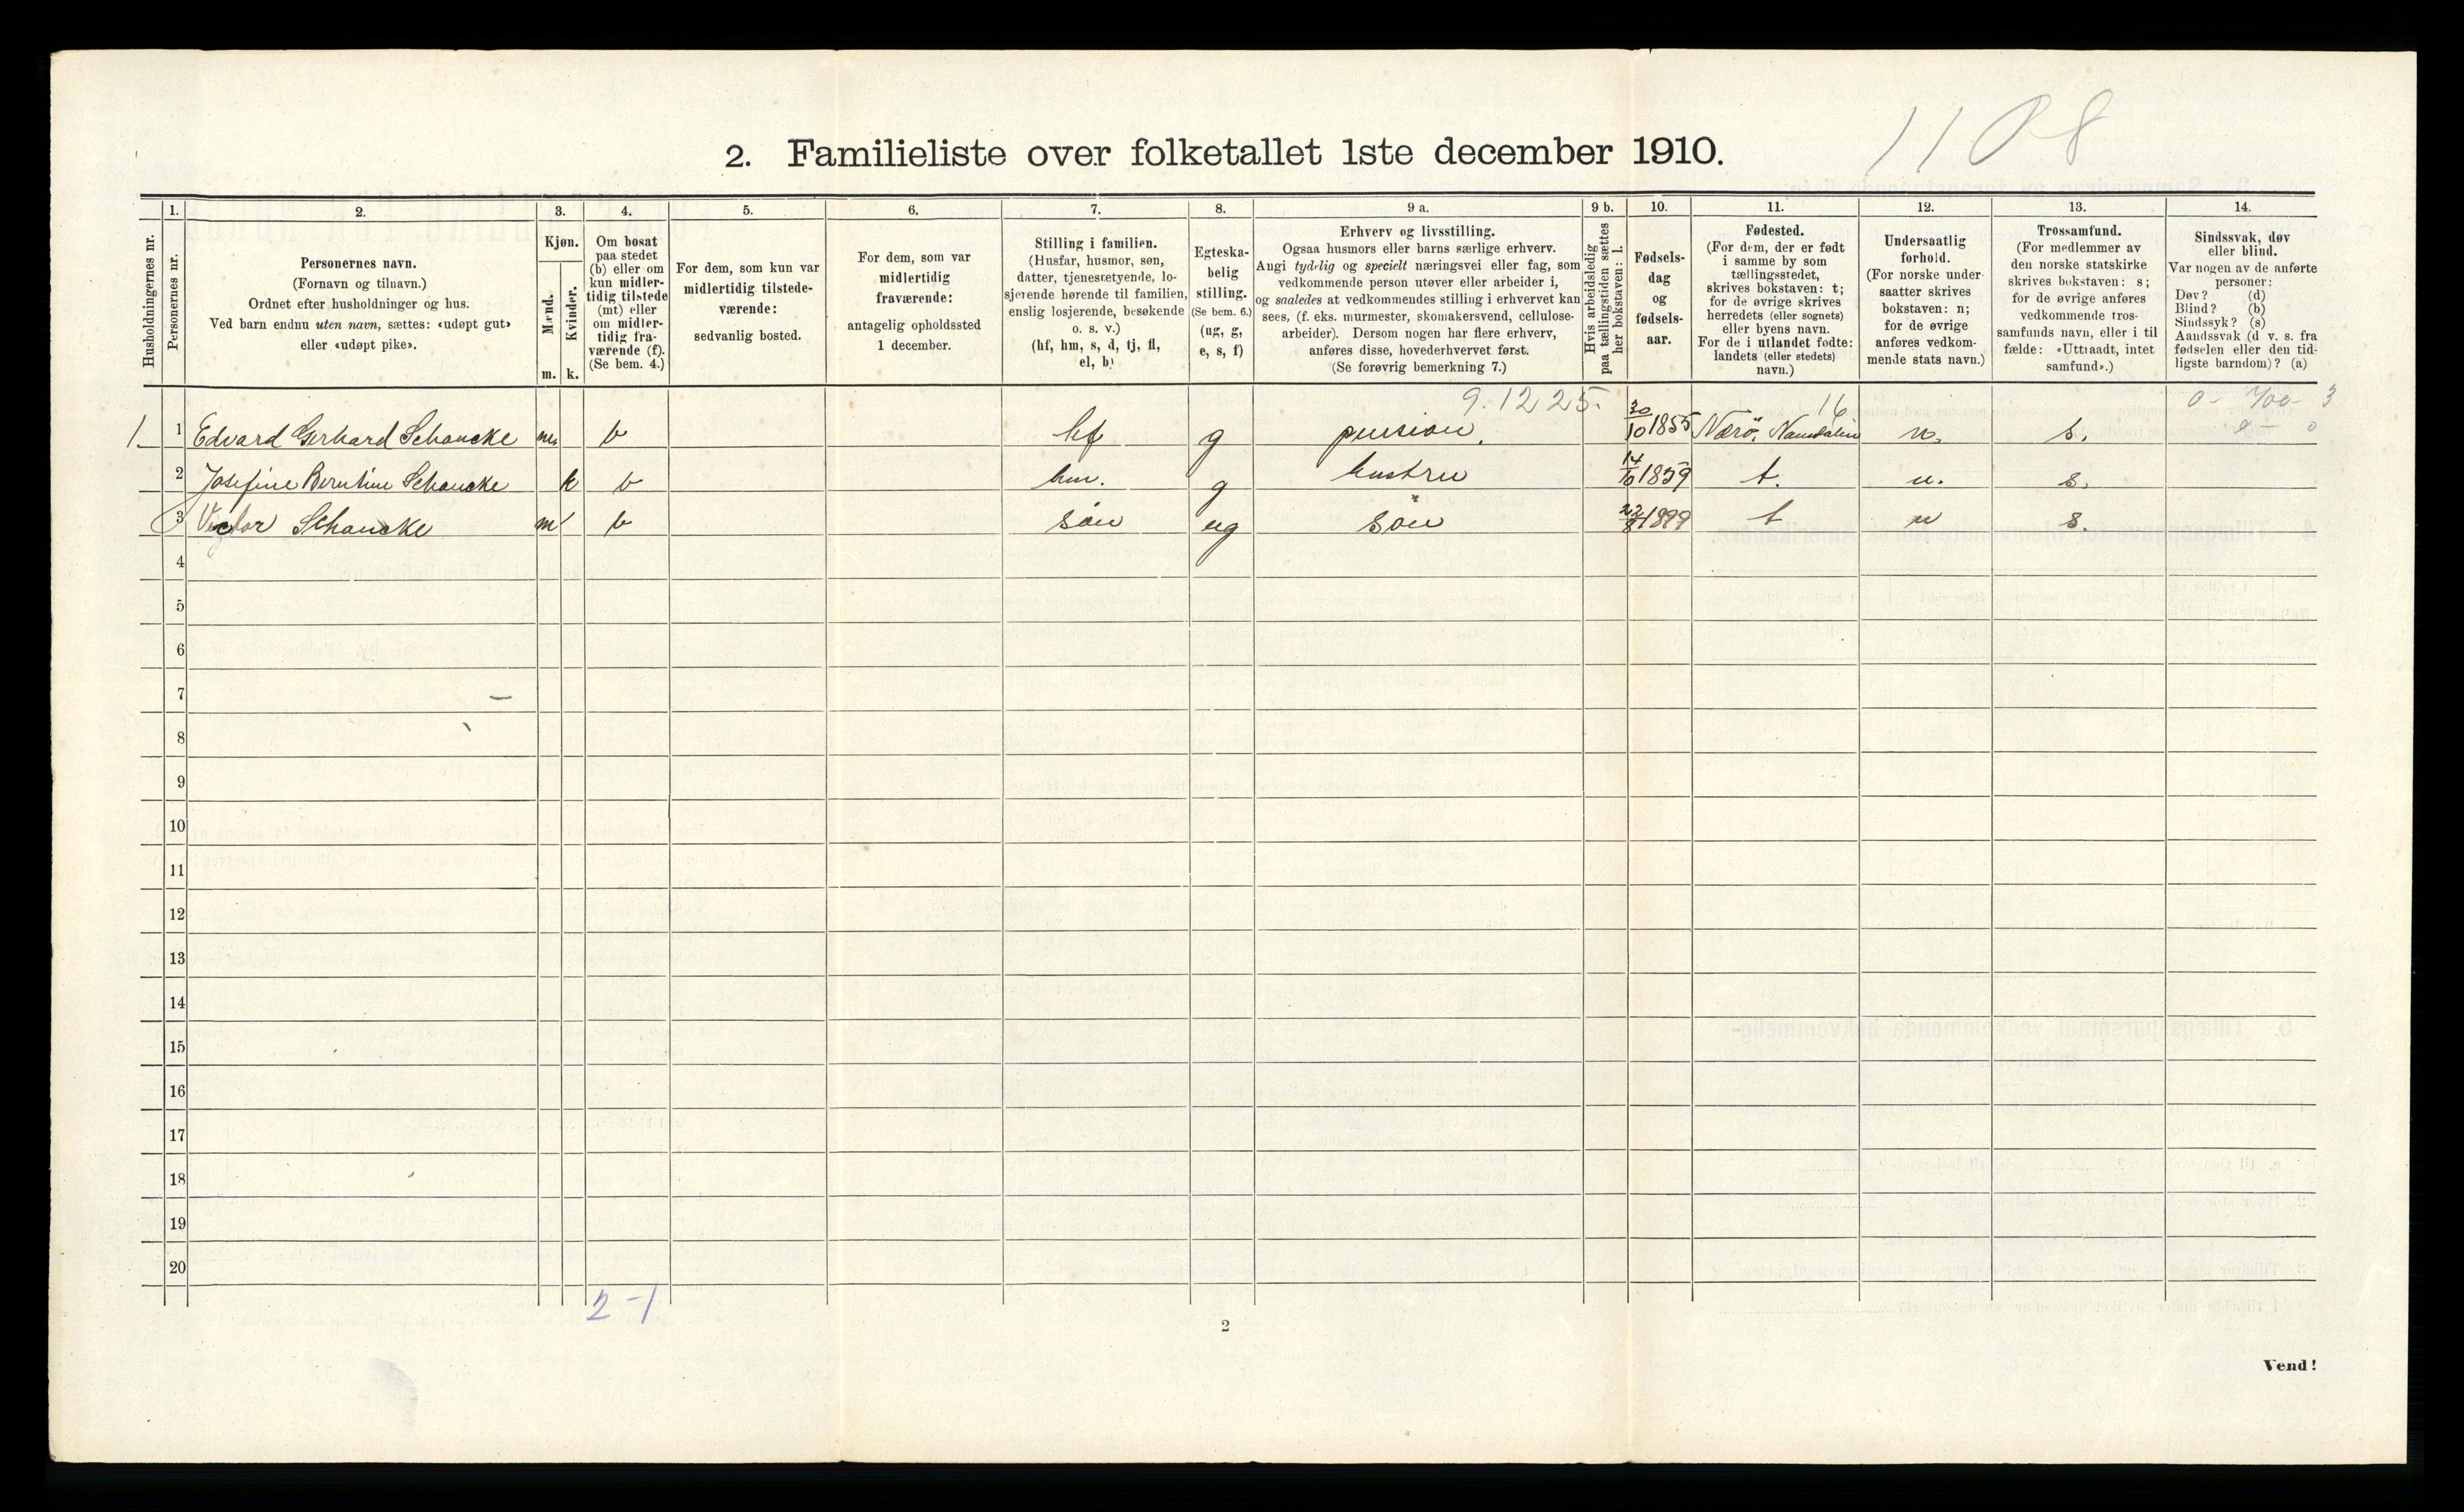 1108
2. Familieliste over folketallet 1ste december 1910.
Husholdningernes nr.
1.
Personernes nr.
2.
Personernes navn.
(Fornavn og tilnavn.)
Ordnet efter husholdninger og hus.
Ved barn endnu uten navn, sættes: «udøpt gut»
eller «udøpt pike».
3.
Kjøn.
Mænd.
m.
Kvinder.
k.
4.
Om bosat
paa stedet
(b) eller om
kun midler-
tidig tilstede
(mt) eller
om midler-
tidig fra-
værende (f).
(Se bem. 4.)
5.
For dem, som kun var
midlertidig tilstede-
værende:
sedvanlig bosted.
6.
For dem, som var
midlertidig
fraværende:
antagelig opholdssted
1 december.
7.
Stilling i familien.
(Husfar, husmor, søn,
datter, tjenestetyende, lo-
sjerende hørende til familien,
enslig losjerende, besøkende
o. s. v.)
(hf, hm, s, d, tj, fl,
el, b)
8.
Egteska-
belig
stilling.
(Se bem. 6.)
(ug, g,
e, s, f)
9 a.
Erhverv og livsstilling.
Ogsaa husmors eller barns særlige erhverv.
Angi tydelig og specielt næringsvei eller fag, som
vedkommende person utøver eller arbeider i,
og saaledes at vedkommendes stilling i erhvervet kan
sees, (f. eks. murmester, skomakersvend, cellulose-
arbeider). Dersom nogen har flere erhverv,
anføres disse, hovederhvervet først.
(Se forøvrig bemerkning 7.)
9 b.
Hvis arbeidsledig
paa tællingstiden sættes
her bokstaven: l.
10.
Fødsels-
dag
og
fødsels-
aar.
11.
Fødested.
(For dem, der er født
i samme by som
tællingsstedet,
skrives bokstaven: t;
for de øvrige skrives
herredets (eller sognets)
eller byens navn.
For de i utlandet fødte:
landets (eller stedets)
navn.)
12.
Undersaatlig
forhold.
(For norske under-
saatter skrives
bokstaven: n;
for de øvrige
anføres vedkom-
mende stats navn.)
13.
Trossamfund.
(For medlemmer av
den norske statskirke
skrives bokstaven: s;
for de øvrige anføres
vedkommende tros-
samfunds navn, eller i til-
fælde: «Uttraadt, intet
samfund».)
14.
Sindssvak, døv
eller blind.
Var nogen av de anførte
personer:
Døv? (d)
Blind? (b)
Sindssyk? (s)
Aandssvak (d. v. s. fra
fødselen eller den tid-
ligste barndom)? (a)
9.1225. 16 0- 700- 3
1. 1 Edvard Gerhard Schancke m. b hf g pension. 30/10 1855 Nærö, Namdalen n. s.
2 Josefine Berntine Schancke k b hm. g hustru 14/10 1859 t. n. s.
3 Victor Schancke m b sön ug sön 22/8 1899 t n s.
4
5
6
7
8
9
10
11
12
13
14
15
16
17
18
19
20
2-1
2
Vend!